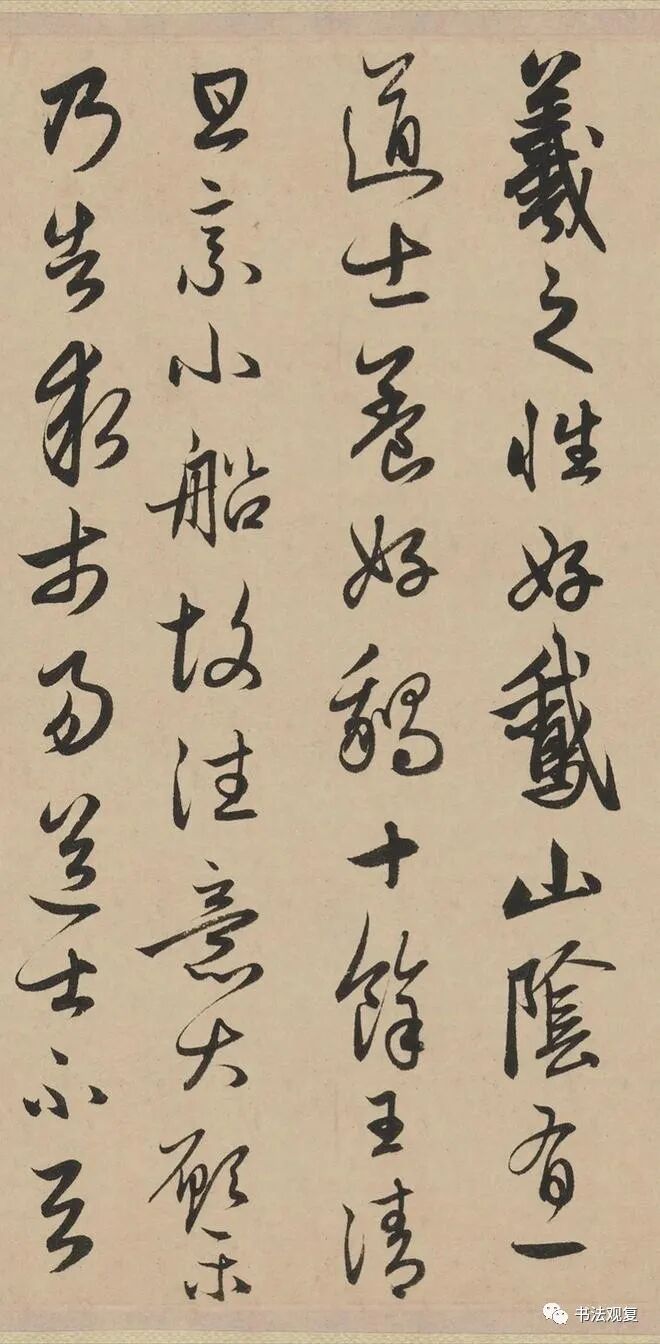 羲之性好鵞山陰有一
道士養好鵝十餘王清
旦乘小船故往意大願樂
乃告求市易道士不与
书法观复